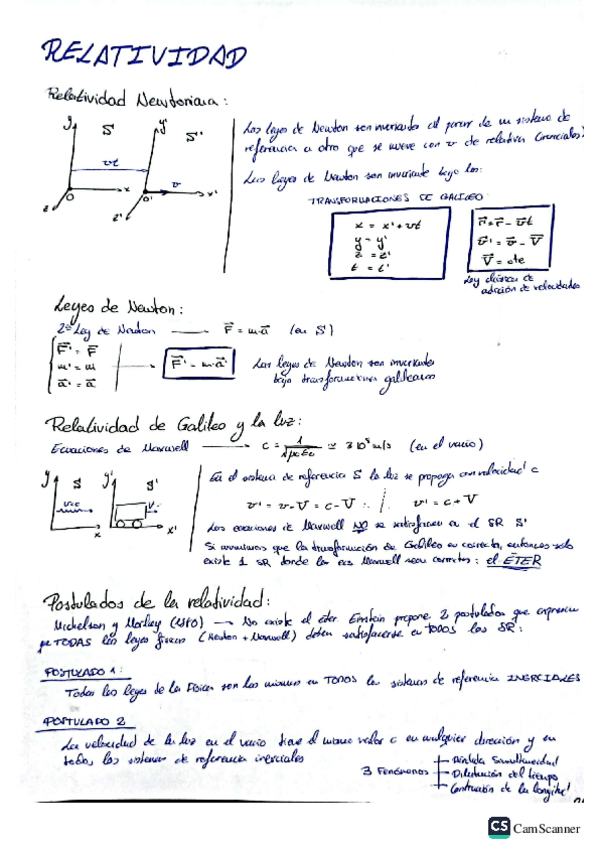 RELATIVIDAD
Relatividad Newtoniana:
y S y' S'
vt
O x O' v x'
z z'
Las leyes de Newton son invariantes al pasar de un sistema de
referencia a otro que se mueve con v cte relativa (inerciales)
Las leyes de Newton son invariante bajo las:
TRANSFORMACIONES DE GALILEO
x = x' + vt
y = y'
z = z'
t = t'
r⃗' = r⃗ - v⃗t
v⃗' = v⃗ - V⃗
V⃗ = cte
Ley clásica de
adición de velocidades
Leyes de Newton:
2ª Ley de Newton F⃗ = m·a⃗ (en S)
F⃗' = F⃗
m' = m
a⃗' = a⃗
F⃗' = m·a⃗'
Las leyes de Newton son invariantes
bajo transformaciones galileanas
Relatividad de Galileo y la luz:
Ecuaciones de Maxwell c = 1/√μ₀ε₀ ≃ 3·10⁸ m/s (en el vacío)
y S y' S'
v=c V
x x'
En el sistema de referencia S la luz se propaga con velocidad c
v' = v - V = c - V v' = c + V
Las ecuaciones de Maxwell NO se satisfacen en el SR S'
Si asumimos que la transformación de Galileo es correcta, entonces solo
existe 1 SR donde las ecs Maxwell sean correctas: el ÉTER
Postulados de la relatividad:
Michelson y Morley → No existe el éter. Einstein propone 2 postulados que expresan
que TODAS las leyes físicas (Newton + Maxwell) deben satisfacerse en TODOS los SR:
POSTULADO 1:
Todas las leyes de la Física son las mismas en TODOS los sistemas de referencia INERCIALES
POSTULADO 2
La velocidad de la luz en el vacío tiene el mismo valor c en cualquier dirección y en
todos los sistemas de referencia inerciales
3 Fenómenos
Pérdida Simultaneidad
Dilatación del tiempo
Contracción de la longitud
CS CamScanner